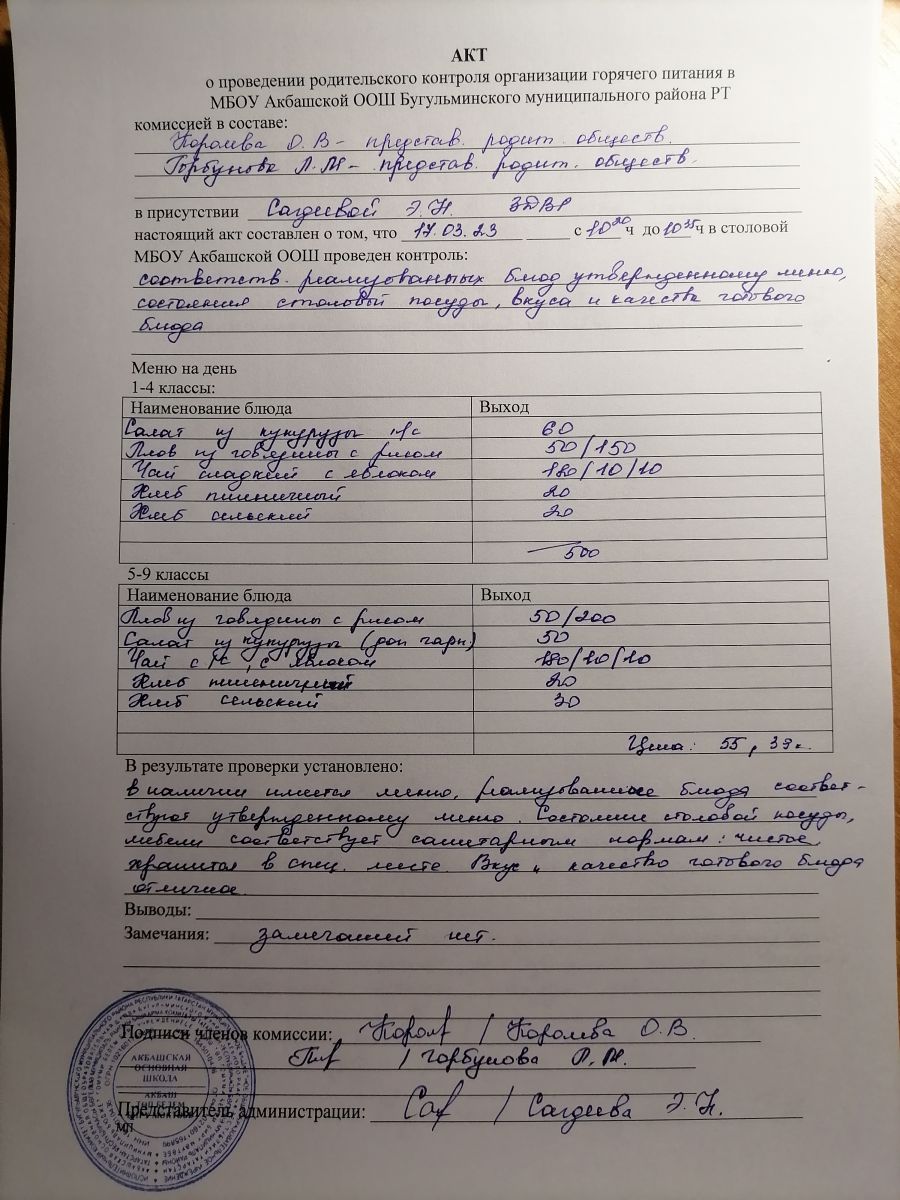 АКТ
о проведении родительского контроля организации горячего питания в
МБОУ Акбашской ООШ Бугульминского муниципального района РТ
комиссией в составе:
Королева О.В - представ. родит. обществ.
Горбунова Л.М - представ. родит. обществ.
в присутствии Сагдеевой Э.Н. ЗДВР
настоящий акт составлен о том, что 17.03.23 с 10²⁰ ч до 10³⁵ ч в столовой
МБОУ Акбашской ООШ проведен контроль:
соответств. реализованных блюд утвержденному меню,
состояния столовый посуды, вкуса и качества готового
блюда
Меню на день
1-4 классы:
Наименование блюда Выход
Салат из кукурузы 60
Плов из говядины с рисом 50/150
Чай сладкий с яблоком 180/10/10
Хлеб пшеничный 20
Хлеб сельский 20
500
5-9 классы
Наименование блюда Выход
Плов из говядины с рисом 50/200
Салат из кукурузы (доп гарн.) 50
Чай с яблоком 180/10/10
Хлеб пшеничный 20
Хлеб сельский 30
Цена: 55, 39к.
В результате проверки установлено:
в наличии имеется меню, реализованные блюда соответ-
ствуют утвержденному меню. Состояние столовой посуды,
мебели соответствует санитарным нормам: чистое,
хранится в спец. месте. Вкус и качество готового блюда
отличное.
Выводы:
Замечания: замечаний нет.
Подписи членов комиссии: Корол / Королева О.В
/ Горбунова Л.М.
АКБАШСКАЯ
ОСНОВНАЯ
ШКОЛА
Представитель администрации: Саг / Сагдеева Э.Н.
МП